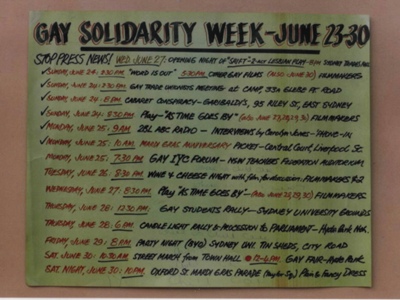 GAY SOLIDARITY WEEK-JUNE 23-30
STOP PRESS NEWS! WED JUNE 27: OPENING NIGHT OF 2 ACT LESBIAN PLAY-8PM
SUNDAY, JUNE 24: 2.30 PM. "WORD IS OUT" 5.30 PM. OTHER GAY FILMS (ALSO JUNE 30) FILMMAKERS
SUNDAY, JUNE 24: 2.30 PM. GAY TRADE UNIONISTS MEETING AT CAMP, 33A GLEBE PT ROAD
SUNDAY, JUNE 24: 8 PM CABARET CONSPIRACY-GARIBALDI'S, 95 RILEY ST, EAST SYDNEY
SUNDAY, JUNE 24: 8.30 PM Play-"AS TIME GOES BY" FILMMAKERS
MONDAY, JUNE 25: 9AM 2BL ABC RADIO- INTERVIEWS by Carolyn Jones-PHONE-IN
MONDAY, JUNE 25: 10AM. MARDI GRAS ANNIVERSARY: PICKET-Central Court, Liverpool St.
MONDAY, JUNE 25: 7.30 PM GAY IYC FORUM- NSW TEACHERS FEDERATION AUDITORIUM
TUESDAY, JUNE 26: 8.30 PM WINE & CHEESE NIGHT with film for discussion. FILMMAKERS
WEDNESDAY, JUNE 27: 8.30PM Play "AS TIME GOES BY"-(Also JUNE 28,29,30) FILMMAKERS
THURSDAY, JUNE 28: 12.30 PM: GAY STUDENTS RALLY-SYDNEY UNIVERSITY GROUNDS
THURSDAY JUNE 28: 6 PM. CANDLE LIGHT RALLY & PROCESSION TO PARLIAMENT- Hyde Park Nth.
FRIDAY, JUNE 29: 8PM. PARTY NIGHT (BYO) SYDNEY UNI. TIN SHEDS, CITY ROAD
SAT. JUNE 30: 10.30AM STREET MARCH from TOWN HALL 12-6 PM. GAY FAIR-Hyde Park
SAT. NIGHT, JUNE 30: 10PM. OXFORD ST MARDI GRAS PARADE Fancy Dress